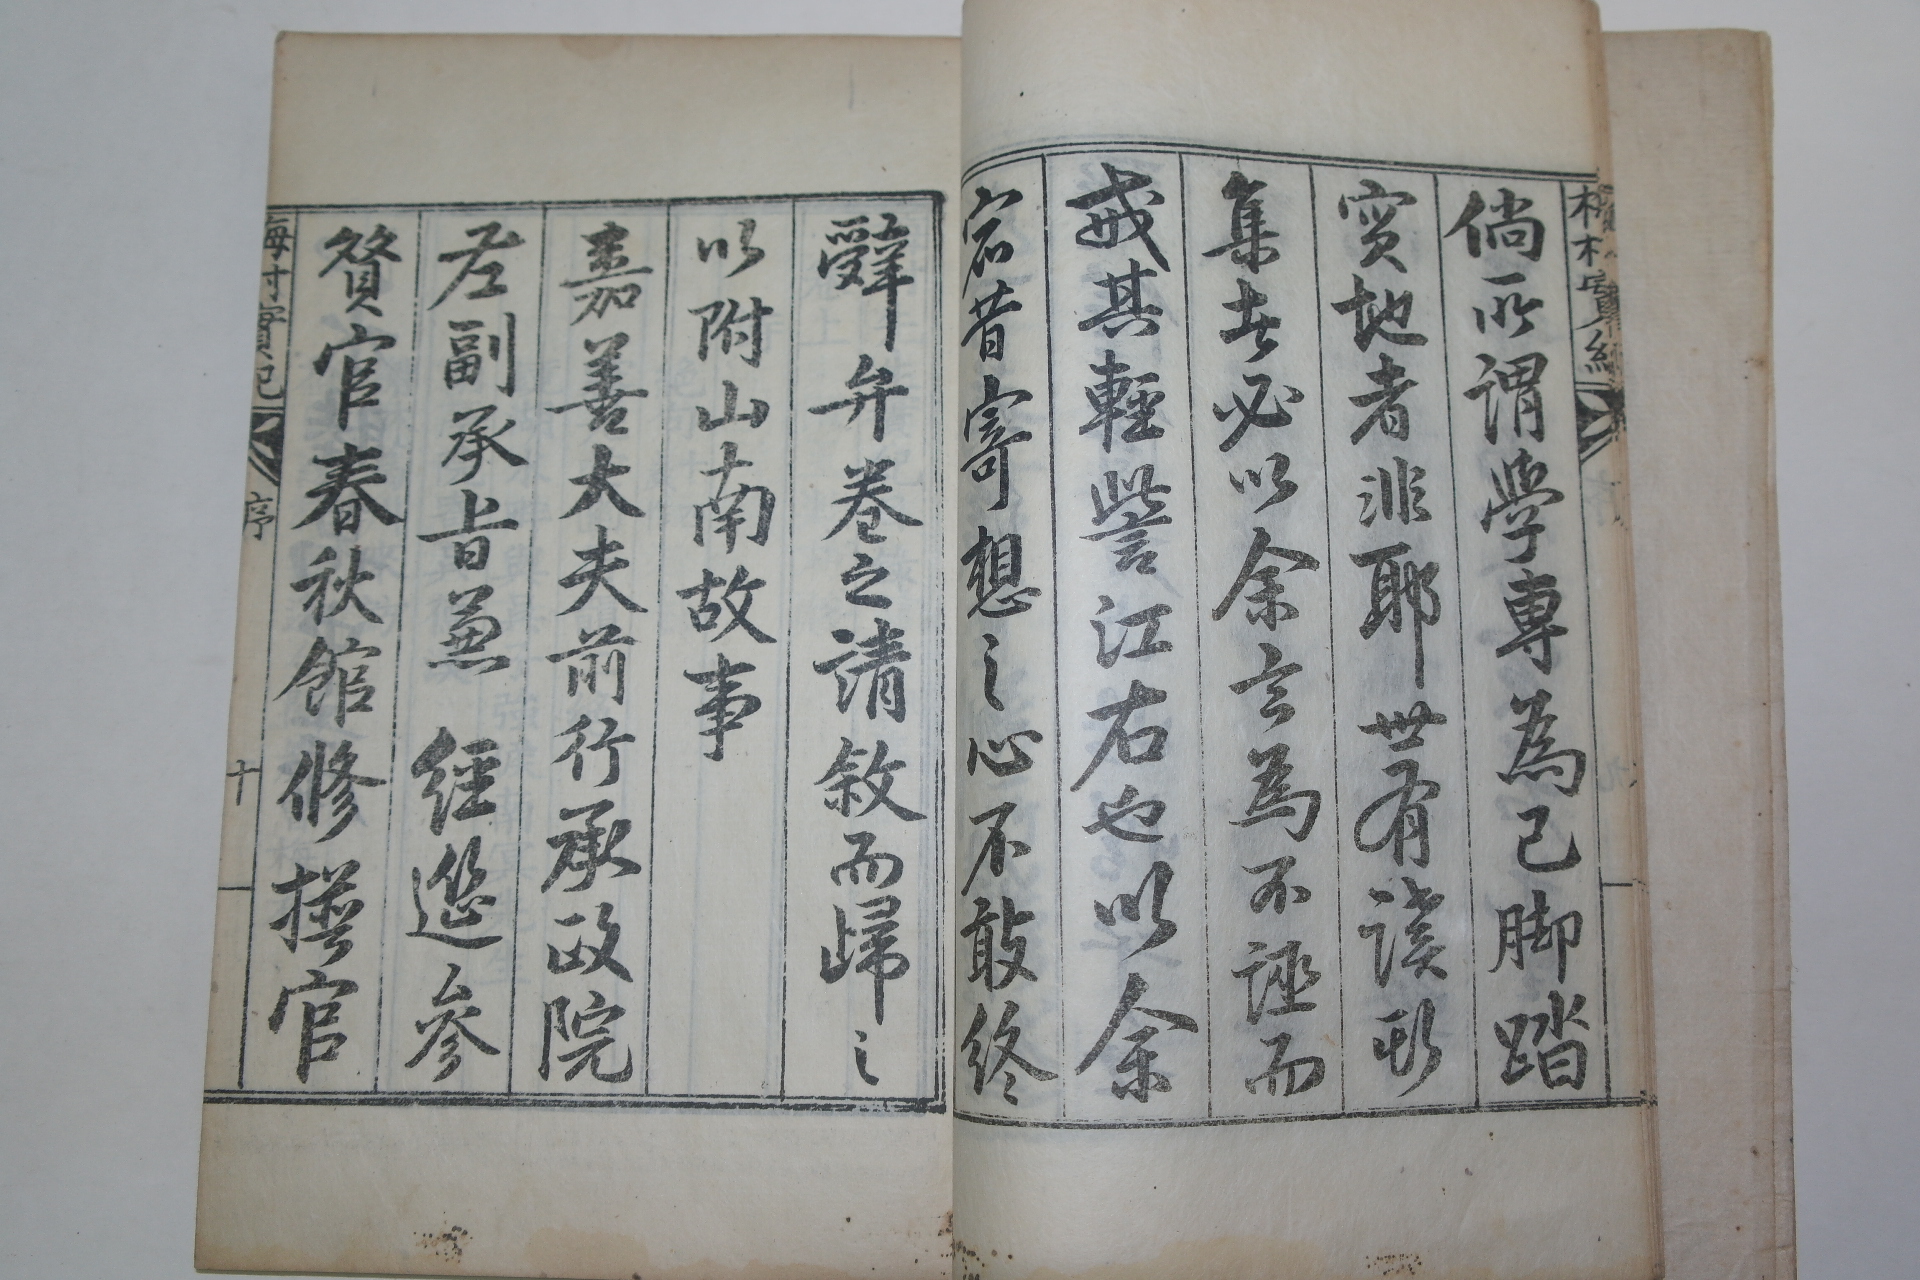 倘所謂學專為己脚踏
實地者非耶世有讀斯
集者必以余言為不誣而
戒其輕訾江右也以余
宿昔寄想之心不敢終
辭弁卷之請敘而歸之
以附山南故事
嘉善大夫前行承政院
左副承旨兼 經筵參
贊官春秋館修撰官
梅村實紀
序
十